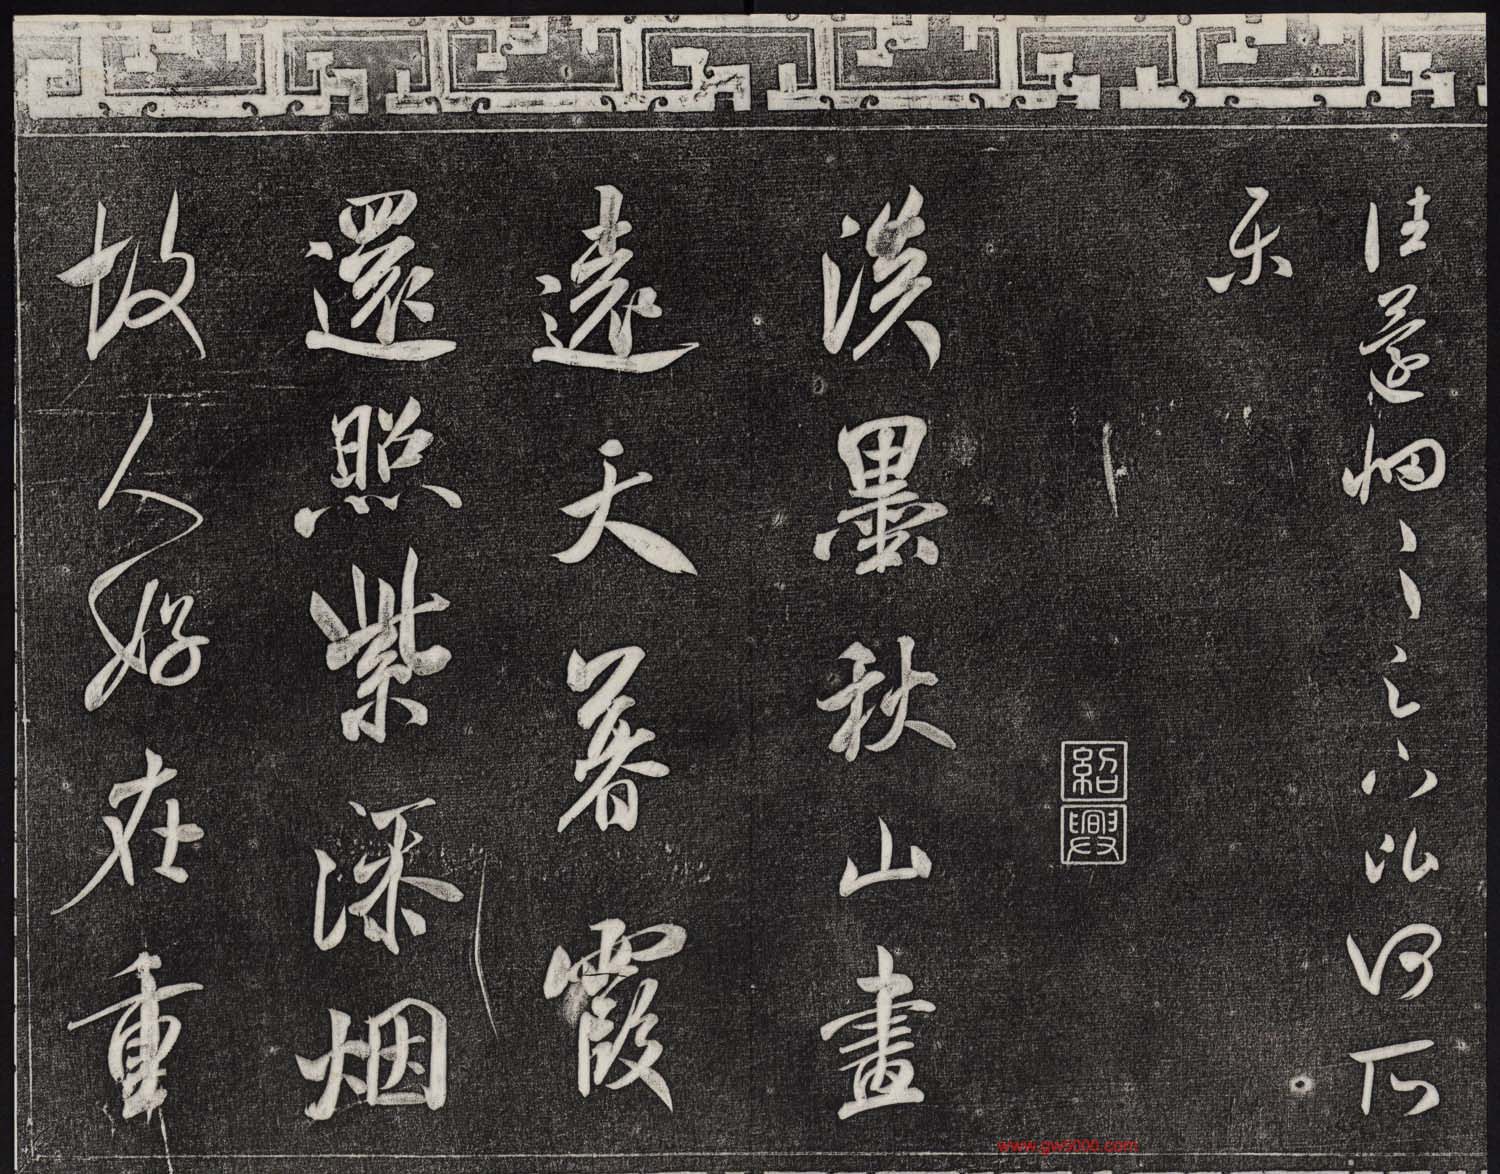 淡墨秋山畫
遠天暮霞
還照紫添烟
故人好在重
紹興
www.gw5000.com